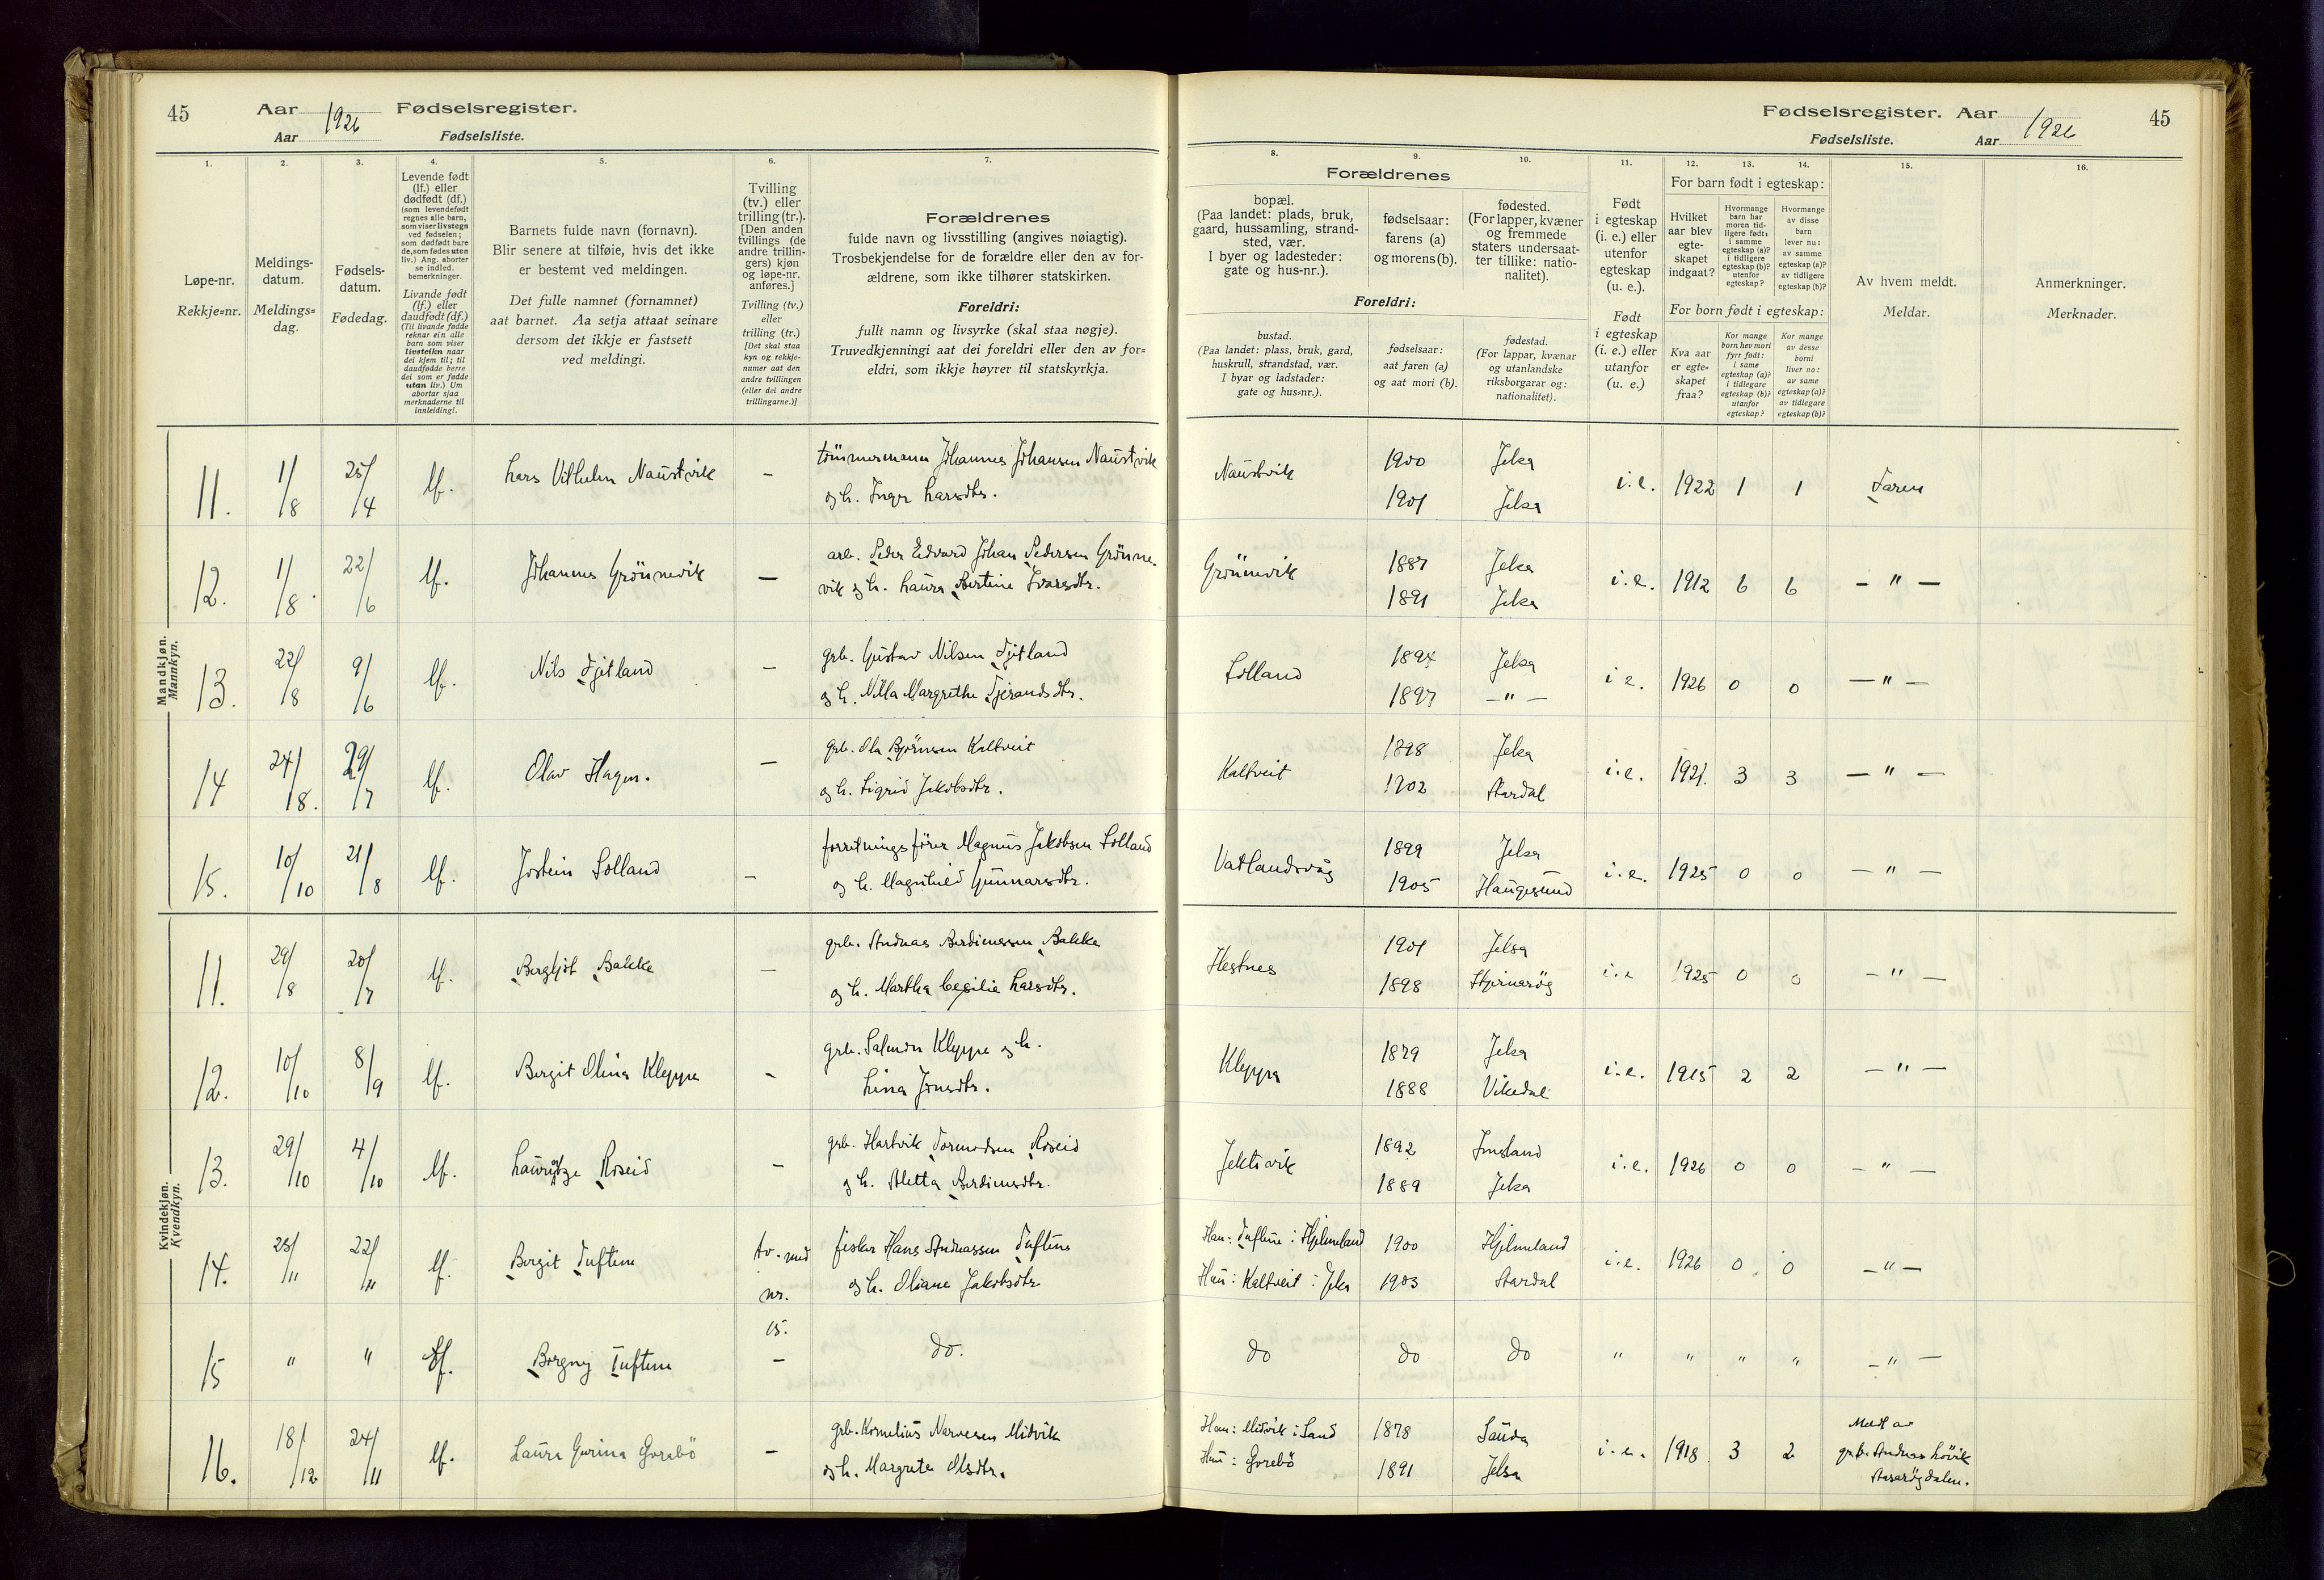 45 Aar 1926 Fødselsregister.
Aar Fødselsliste.
1. 2. 3. 4. 5. 6. 7.
Løpe-nr.
Rekkje=nr.
Meldings-
datum.
Meldings=
dag.
Fødsels-
datum.
Fødedag.
Levende født
(lf.) eller
dødfødt (df.)
(som levendefødt
regnes alle barn,
som viser livstegn
ved fødselen;
som dødfødt bare
de, som fødes uten
liv.) Ang. aborter
se indled.
bemerkninger.
Livande født
(lf.) eller
daudfødt (df.)
(Til livande fødde
reknar ein alle
barn som viser
livsteikn naar
dei kjem til; til
daudfødde berre
dei som er fødde
utan liv.) Um
abortar sjaa
merknaderne til
innleidingi.
Barnets fulde navn (fornavn).
Blir senere at tilføie, hvis det ikke
er bestemt ved meldingen.
Det fulle namnet (fornamnet)
aat barnet. Aa setja attaat seinare
dersom det ikkje er fastsett
ved meldingi.
Tvilling
(tv.) eller
trilling (tr.).
[Den anden
tvillings (de
andre trillin-
gers) kjøn
og løpe-nr.
anføres.]
Tvilling (tv.)
eller
trilling (tr.)
[Det skal staa
kyn og rekkje-
numer aat den
andre tvillingen
(eller dei andre
trillingarne.)]
Forældrenes
fulde navn og livsstilling (angives nøiagtig).
Trosbekjendelse for de forældre eller den av for-
ældrene, som ikke tilhører statskirken.
Foreldri:
fullt namn og livsyrke (skal staa nøgje).
Truvedkjenningi aat dei foreldri eller den av for=
eldri, som ikkje høyrer til statskyrkja.
Mandkjøn.
Mannkyn.
11. 1/8 25/4 lf. Lars Vilhelm Naustvik – tømmermann Johannes Johansen Naustvik
og h. Inger Larsdtr.
12. 1/8. 22/6 lf. Johannes Grønnevik – arb. Peder Edvard Johan Pedersen Grønne-
vik og h. Laura Bertine Ivarsdtr.
13. 22/8 9/6 lf. Nils Fjetland – grb. Gustav Nilsen Fjetland
og h. Nilla Margrethe Sjerandsdtr.
14 24/8. 29/7 lf. Olav Hagen. – grb. Ola Bjørnsen Kaltveit
og h. Sigrid Jakobsdtr.
15. 10/10 21/8 lf. Jostein Solland – forretningsfører Magnus Jakobsen Solland
og h. Magnhild Gunnarsdtr.
Kvindekjøn.
Kvendkyn.
11. 29/8 20/7 lf. Bergljot Bakke – grb. Andreas Berdinessen Bakke
og h. Martha Cecilie Larsdtr.
12. 10/10 8/9 lf. Bergit Olina Kleppe – grb. Salmon Kleppe og h.
Lina Jonsdtr.
13. 29/10 4/10 lf. Røseid – grb. Hartvik Tormodsen Røseid
og h. Aletta Berdinesdtr.
14. 25/11 22/11 lf. Bergit Tuftene tv. med
nr.
15.
fisker Hans Andreassen Tuftene
og h. Oliane Jakobsdtr.
15 " " lf. Borgny Tuftene – do.
16. 18/12 24/11 lf. Laura Gurina Gorebö – grb. Kornelius Narvesen Midvik
og h. Margreta Olsdtr.
Fødselsregister. Aar 1926 45
Fødselsliste. Aar
8. 9. 10. 11. 12. 13. 14. 15. 16.
Forældrenes
bopæl.
(Paa landet: plads, bruk,
gaard, hussamling, strand-
sted, vær.
I byer og ladesteder:
gate og hus-nr.).
fødselsaar:
farens (a)
og morens (b).
fødested.
(For lapper, kvæner
og fremmede
staters undersaat-
ter tillike: natio-
nalitet).
Foreldri:
bustad.
(Paa landet: plass, bruk, gard,
huskrull, strandstad, vær.
I byar og ladstader:
gate og hus=nr.).
fødselsaar:
aat faren (a)
og aat mori (b).
fødestad.
(For lappar, kvænar
og utanlandske
riksborgarar og:
nationalitet).
Født
i egteskap
(i. e.) eller
utenfor
egteskap
(u. e.).
Født
i egteskap
(i. e.) eller
utanfor
(u. e.)
For barn født i egteskap:
Hvilket
aar blev
egte-
skapet
indgaat?
Hvormange
barn har
moren tid-
ligere født:
i samme
egteskap (a)?
i tidligere
egteskap (b)?
utenfor
egteskap?
Hvormange
av disse
barn
lever nu:
av samme
egteskap (a)?
av tidligere
egteskap (b)?
For born født i egteskap:
Kva aar
er egte=
skapet
fraa?
Kor mange
born hev mori
fyrr født:
i same
egteskap (a)?
i tidlegare
egteskap (b)?
utanfor
egteskap?
Kor mange
av desse
borni
liver no:
av same
egteskap (a)?
av tidlegare
egteskap (b)?
Av hvem meldt.
Meldar.
Anmerkninger.
Merknader.
Naustvik 1900 Jelsa i.e. 1922 1 1 Faren
1901 Jelsa
Grønnevik 1887 Jelsa i.e. 1912 6 6 – " –
1891 Jelsa
Solland 1894 Jelsa i e. 1926 0 0 – " –
1897 – " –
Kaltveit 1898 Jelsa i.e. 1921. 3 3 – " –
1902 Aardal
Vatlandsvåg 1899 Jelsa i.e. 1925 0 0 – " –
1905 Haugesund
Hestnes 1901 Jelsa i.e 1925 0 0 – " –
1898 Stjernarøy
Kleppe 1879 Jelsa i.e. 1915 2 2 – " –
1888 Vikedal
Jektevik 1892 Imsland i.e. 1926 0 0 – " –
1889 Jelsa
Han: Tuftene i Hjelmeland 1900 Hjelmeland i.e. 1926 0. 0 – " –
Hun: Kaltveit i Jelsa 1903 Aardal
do do do " " " " – " –
Han: Midvik i Sand 1878 Sauda i.e. 1918 3 2 Meldt av
Hun: Gorebö 1891 Jelsa grb. Andreas Løvik